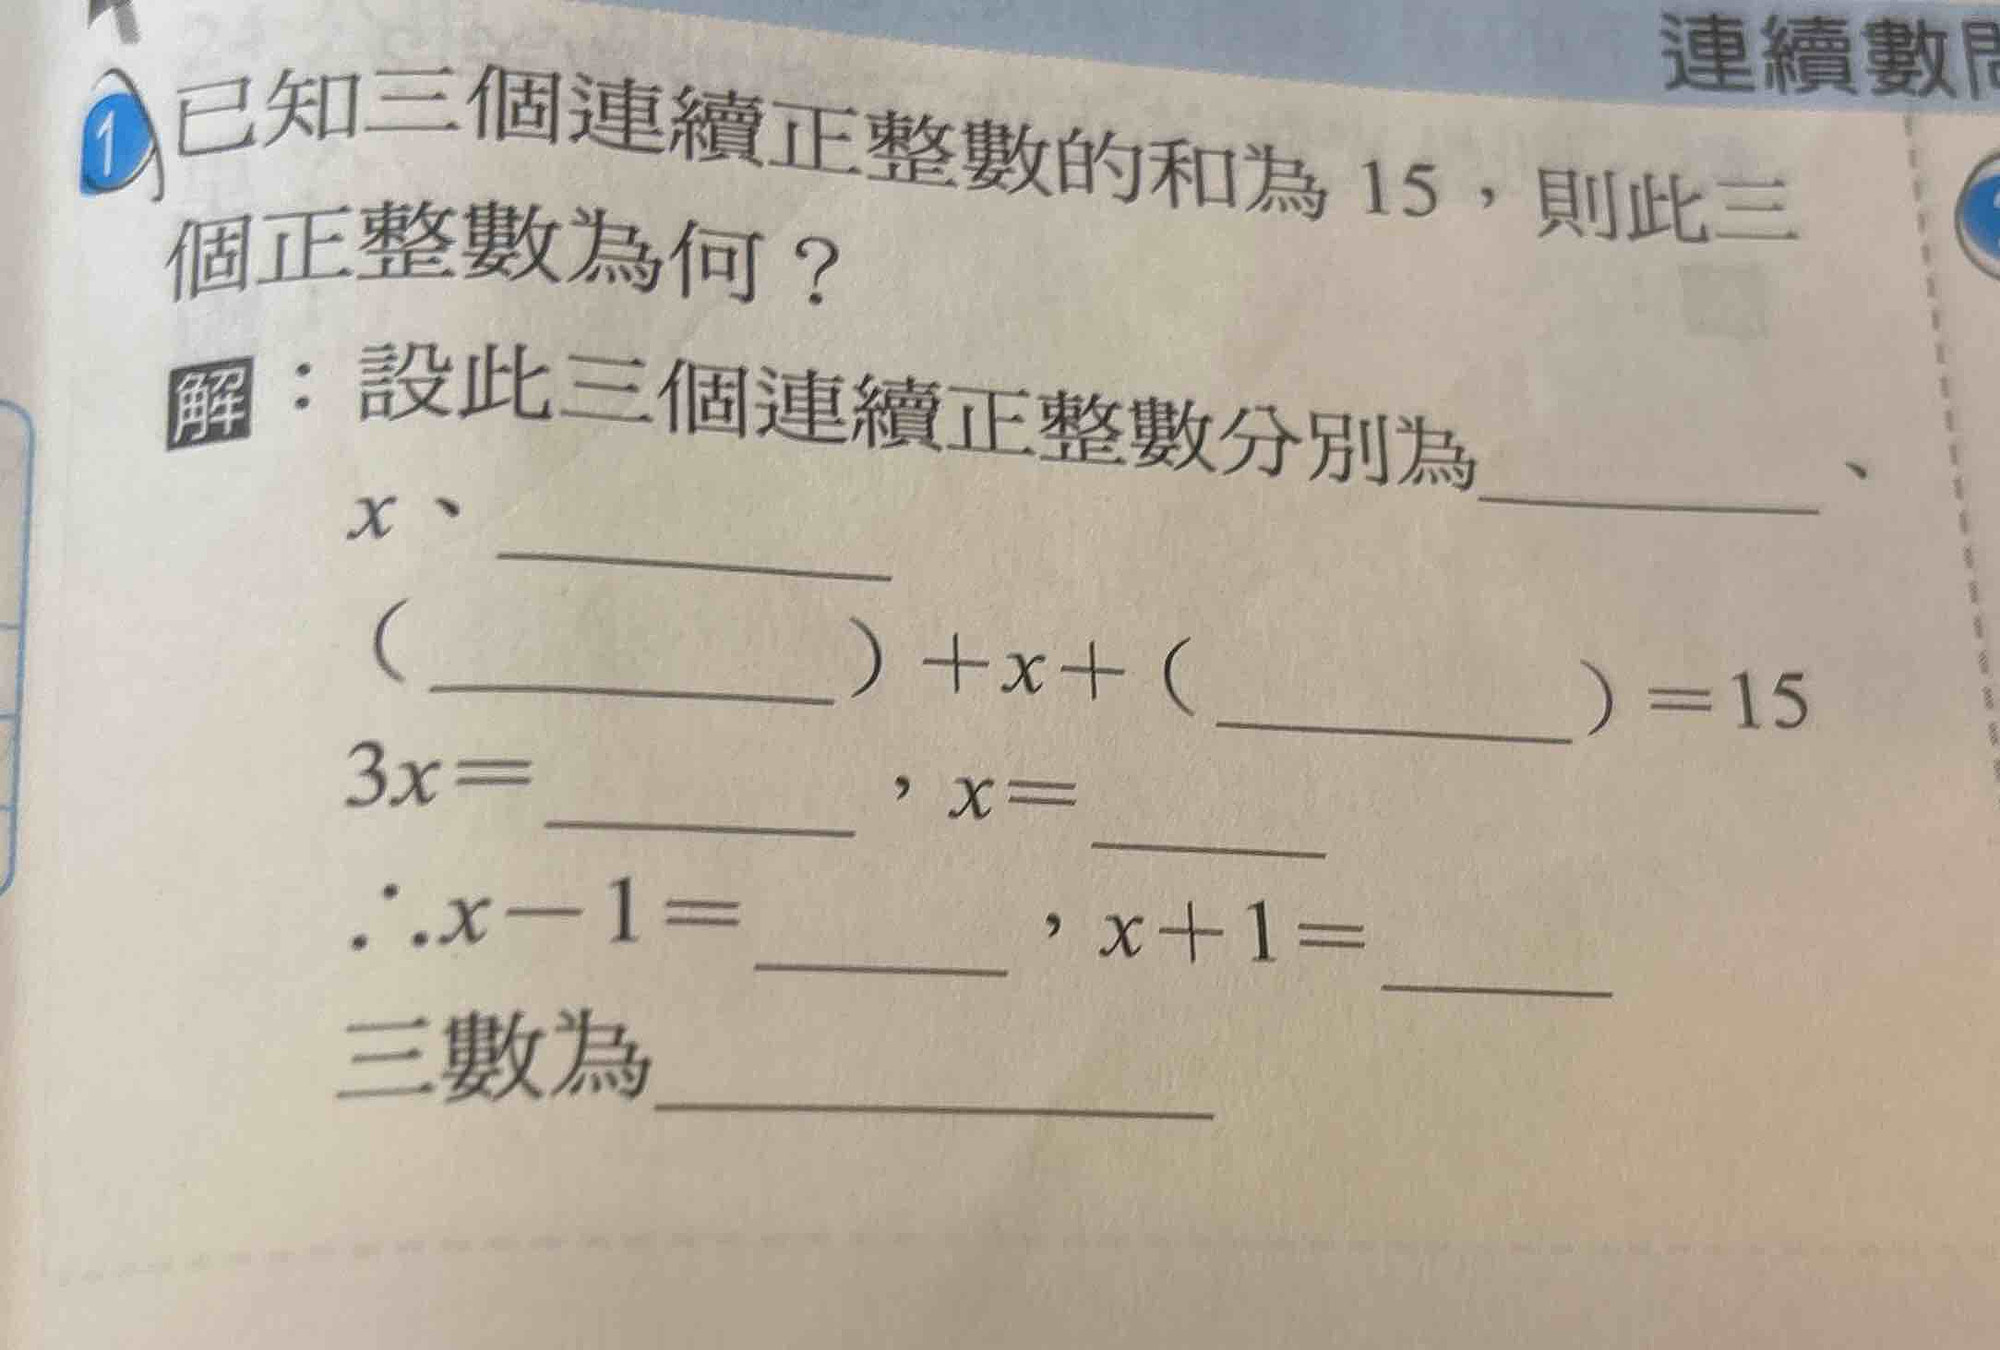 連續數
1 已知三個連續正整數的和為 15，則此三
個正整數為何？
解：設此三個連續正整數分別為______、
x、______
（______）＋x＋（______）＝15
3x＝______，x＝______
∴x－1＝______，x＋1＝______
三數為______